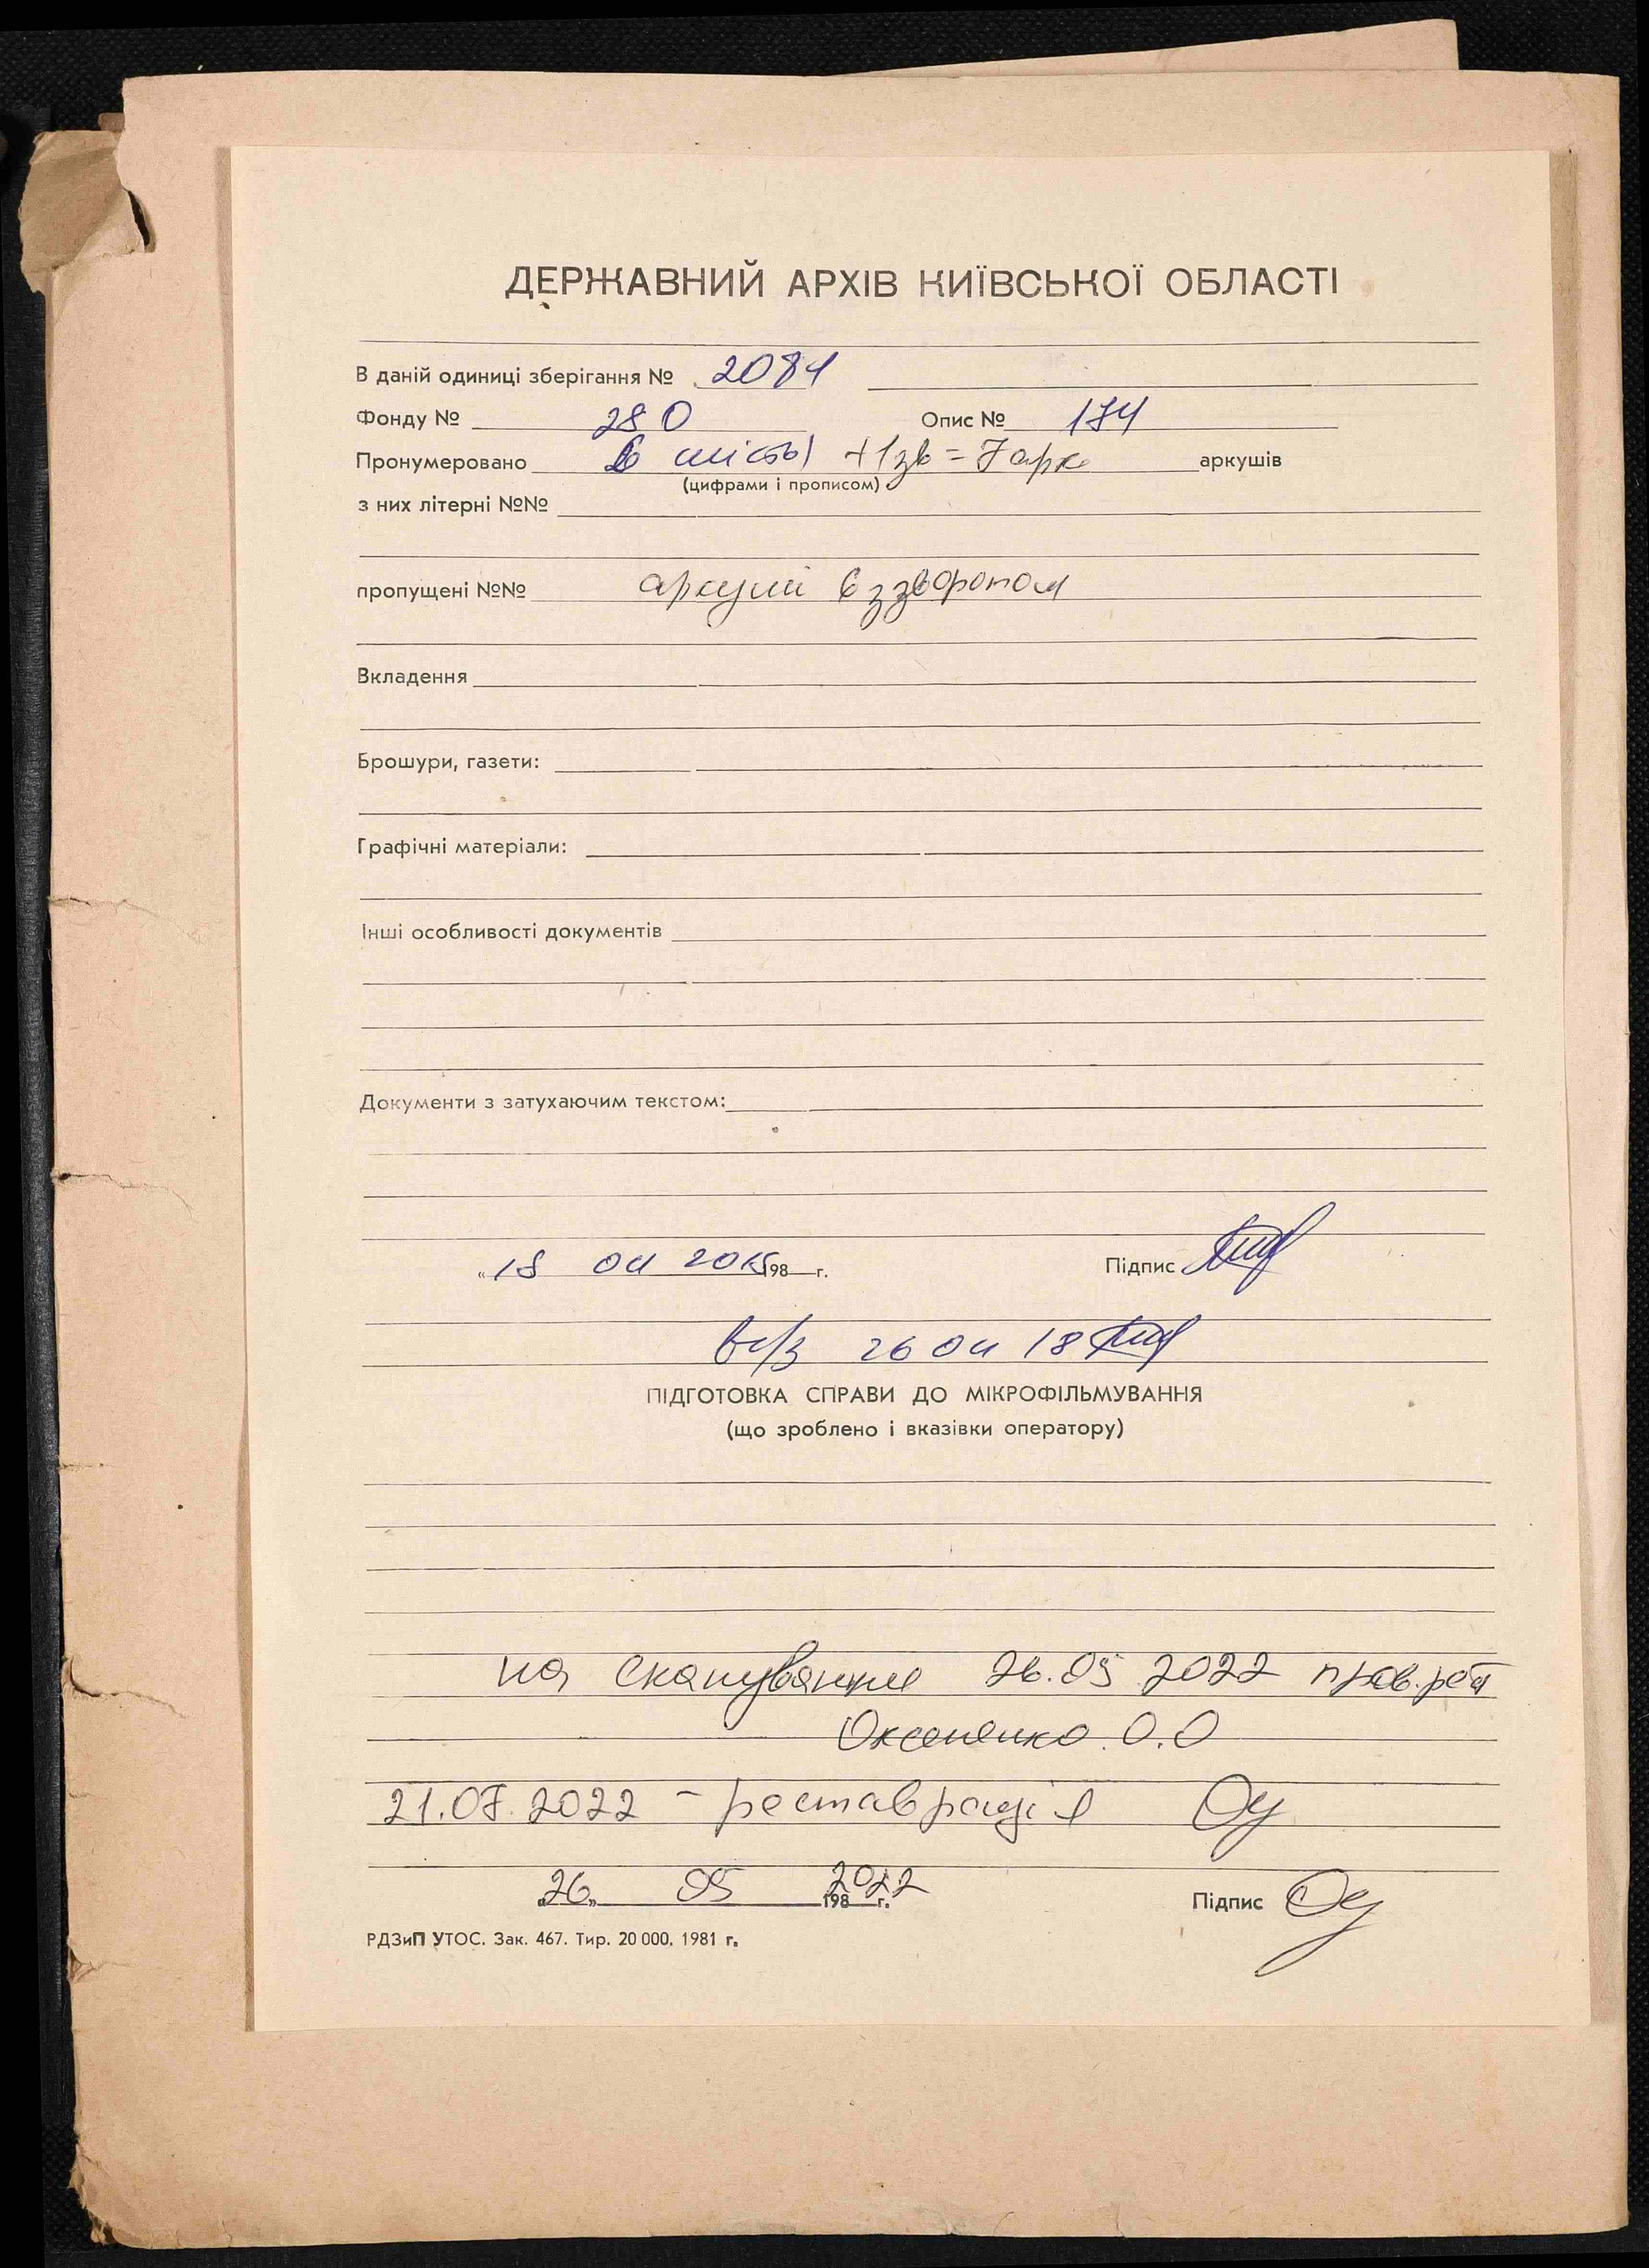 ДЕРЖАВНИЙ АРХІВ КИЇВСЬКОЇ ОБЛАСТІ
В даній одиниці зберігання № 2084
Фонду № 280 Опис № 174
Пронумеровано 6 (шість) +1зв = 7 арк аркушів
(цифрами і прописом)
з них літерні №№
пропущені №№ аркуш 6 з зворотом
Вкладення
Брошури, газети:
Графічні матеріали:
Інші особливості документів
Документи з затухаючим текстом:
„ 18 04 2018 198 г. Підпис
26 04 18
ПІДГОТОВКА СПРАВИ ДО МІКРОФІЛЬМУВАННЯ
(що зроблено і вказівки оператору)
на сканування 26.05 2022 пров.
Оксененко О.О
21.07.2022 – реставрація
„26„ 05 2022 198 г. Підпис
РДЗиП УТОС. Зак. 467. Тир. 20 000. 1981 г.